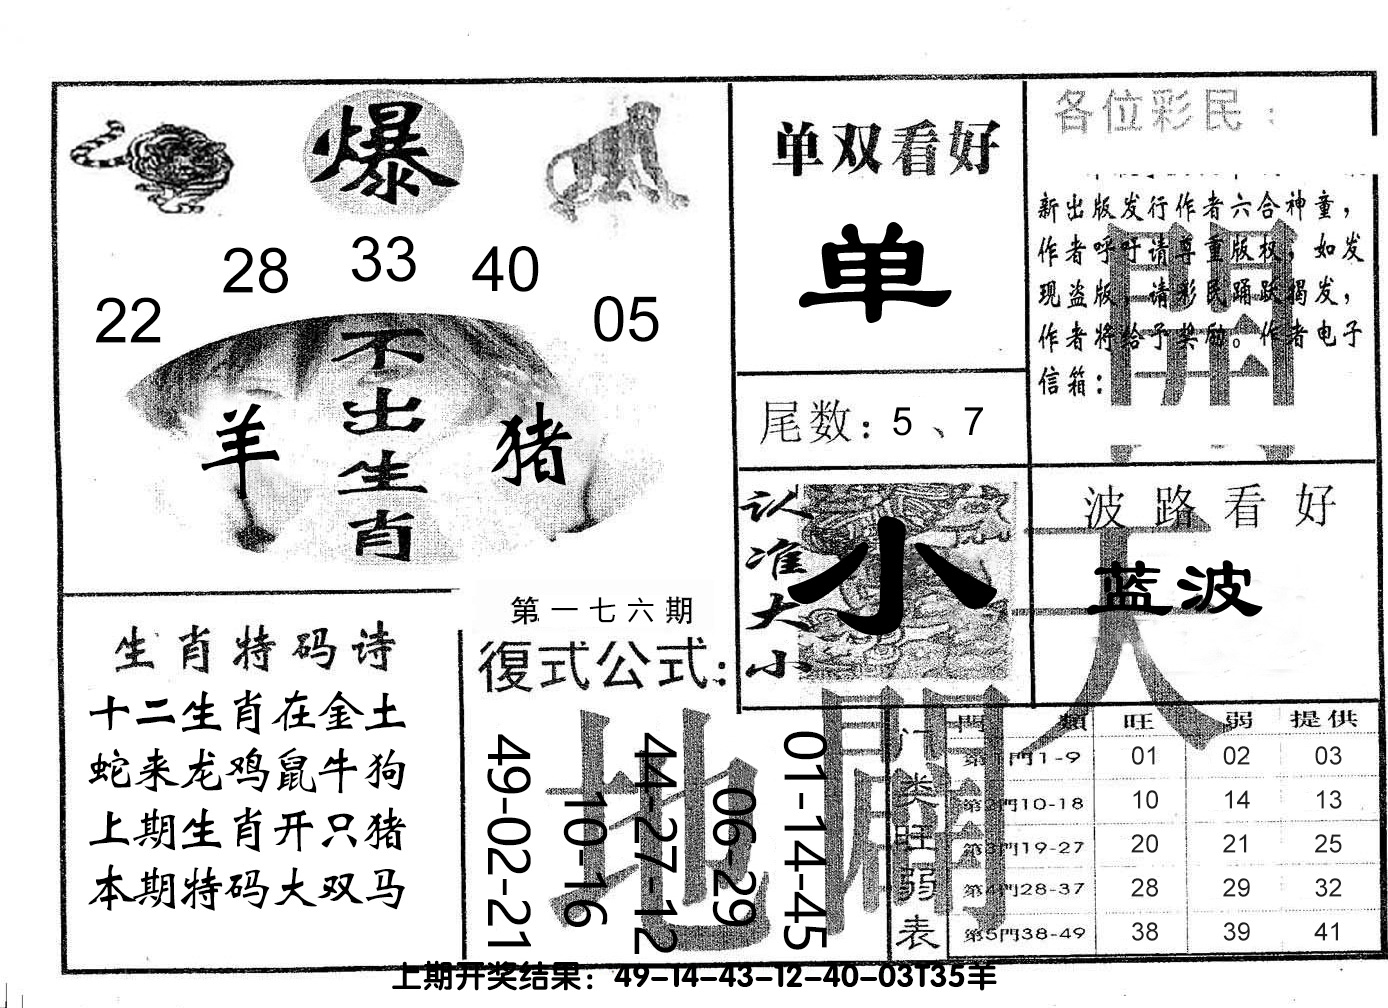 爆
22
28
33
40
05
不出生肖
羊
猪
单双看好
单
尾数：5、7
认准大小
小
各位彩民：
新出版发行作者六合神童，
作者呼吁请尊重版权，如发
现盗版，请彩民踊跃揭发，
作者将给予奖励。作者电子
信箱：
波路看好
蓝波
天
開
地
生肖特码诗
十二生肖在金土
蛇来龙鸡鼠牛狗
上期生肖开只猪
本期特码大双马
第一七六期
復式公式：
49-02-21
10-16
44-27-12
06-29
01-14-45
门类旺弱表
門類 旺 弱 提供
第1門1-9 01 02 03
第2門10-18 10 14 13
第3門19-27 20 21 25
第4門28-37 28 29 32
第5門38-49 38 39 41
上期开奖结果：49-14-43-12-40-03T35羊